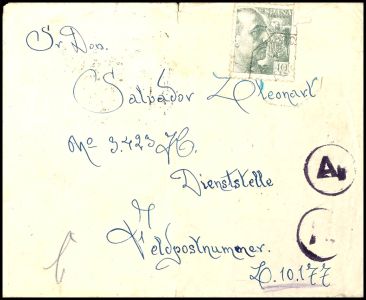 ESPAÑA
Sr. Don.
Salvador Lleonart
Nº 3.423 H.
Dienststelle
Feldpostnummer.
10.177